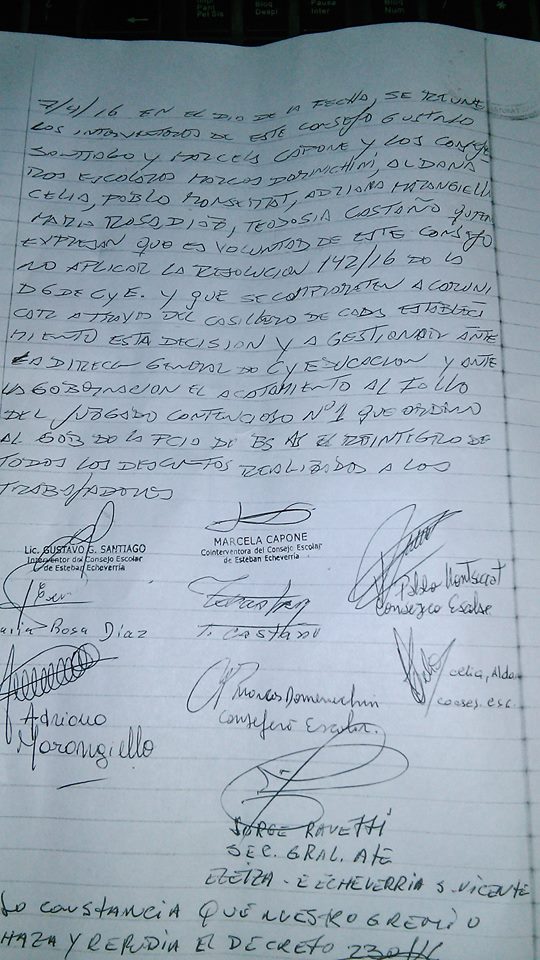 7/4/16 EN EL DIA DE LA FECHA, SE REUNE
LOS INTERVENTORES DE ESTE CONSEJO GUSTAVO
SANTIAGO Y MARCELA CAPONE Y LOS CONSEJE
ROS ESCOLARES MARCOS DOMENICHINI, ALDANA
CELIA, PABLO MONSERRAT, ADRIANA MARANGIELLO
MARIA ROSA DIAZ, TEODOSIA CASTAÑO QUIENES
EXPRESAN QUE ES VOLUNTAD DE ESTE CONSEJO
NO APLICAR LA RESOLUCION 142/16 DE LA
DG DE C y E. Y QUE SE COMPROMETEN A COMUNI
CAR A TRAVES DEL CASILLERO DE CADA ESTABLECI
MIENTO ESTA DECISION Y A GESTIONAR ANTE
LA DIRECC GENERAL DE C y EDUCACION Y ANTE
LA GOBERNACION EL ACATAMIENTO AL FALLO
DEL JUZGADO CONTENCIOSO Nº1 QUE ORDENO
AL GOB DE LA PCIA DE BS AS EL REINTEGRO DE
TODOS LOS DESCUENTOS REALIZADOS A LOS
TRABAJADORES
Lic. GUSTAVO G. SANTIAGO
Interventor del Consejo Escolar
de Esteban Echeverría
MARCELA CAPONE
Cointerventora del Consejo Escolar
de Esteban Echeverría
Pablo Montserrat
Consejero Escolar
Maria Rosa Diaz
T. CASTAÑO
Celia, Aldana
conses. esc.
Adriana
Marangiello
Marcos Domenichini
Consejero Escolar.
JORGE RAVETTI
SEC. GRAL. ATE
EZEIZA - E ECHEVERRIA S. VICENTE
CONSTANCIA QUE NUESTRO GREMIO
Y REPUDIA EL DECRETO 230/16